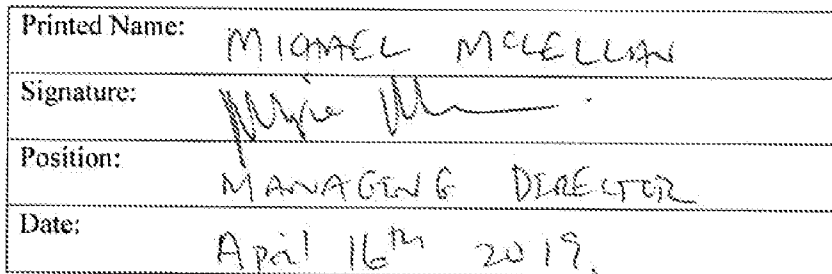 Printed Name: MICHAEL MCLELLAN
Signature:
Position: MANAGING DIRECTOR
Date: April 16th 2019.